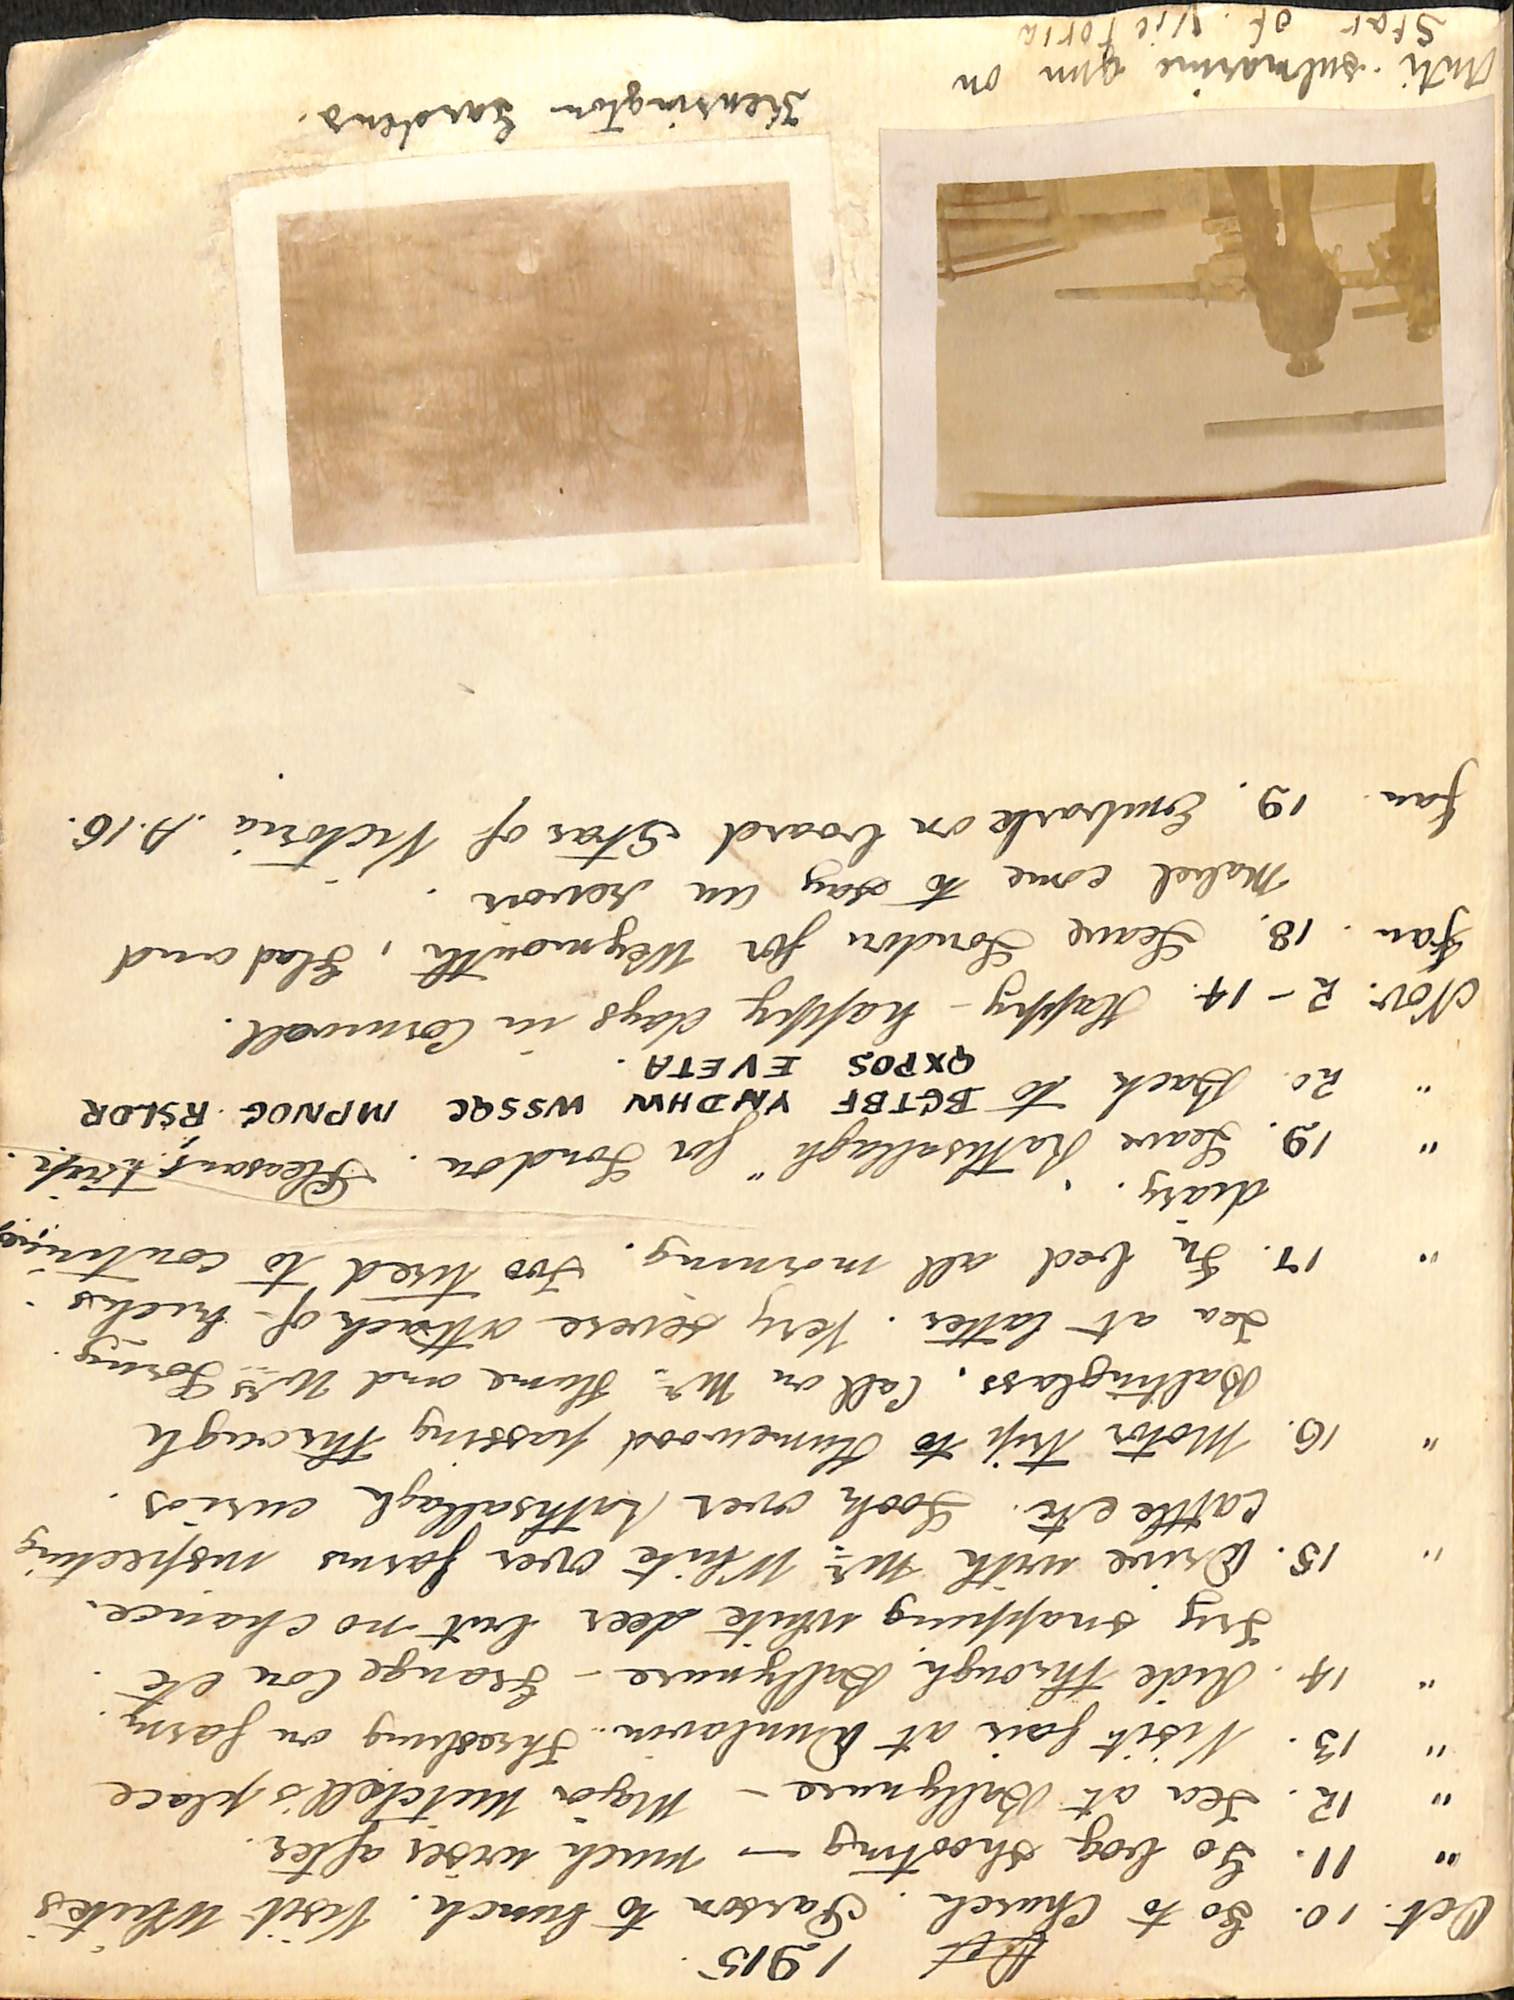 ~~Oct~~ 1915.
Oct. 10. Go to Church. Parson to lunch. Visit Whites
" 11. Go bog shooting — much wiser after.
" 12. Tea at Ballynure – Major Mitchell's place
" 13. Visit fair at Dunlavin. Thrashing on farm.
" 14. Ride through Ballynure – Grange Con etc.
Try snapping white deer but no chance.
" 15. Drive with Mr White over farms inspecting
cattle etc. Look over Rathsallagh curios.
" 16. Motor trip to Humewood passing through
Baltinglass. Call on Mr. Hume and Mrs Loring.
Tea at latter. Very severe attack of hicks.
" 17. In bed all morning. Too tired to continue
diary.
" 19. Leave "Rathsallagh" for London. Pleasant trip.
" 20. Back to BGTBF YMDHW WSSQC MPNOG RSLDR
QXPOS EVETA.
Nov. 2 – 14. Happy – happy days in Cornwall.
Jan. 18. Leave London for Weymouth, Glad and
Mabel come to say au revoir.
Jan. 19. Embark on board Star of Victoria. A.16.
Kensington Gardens.
Anti-submarine gun on
Star of Victoria